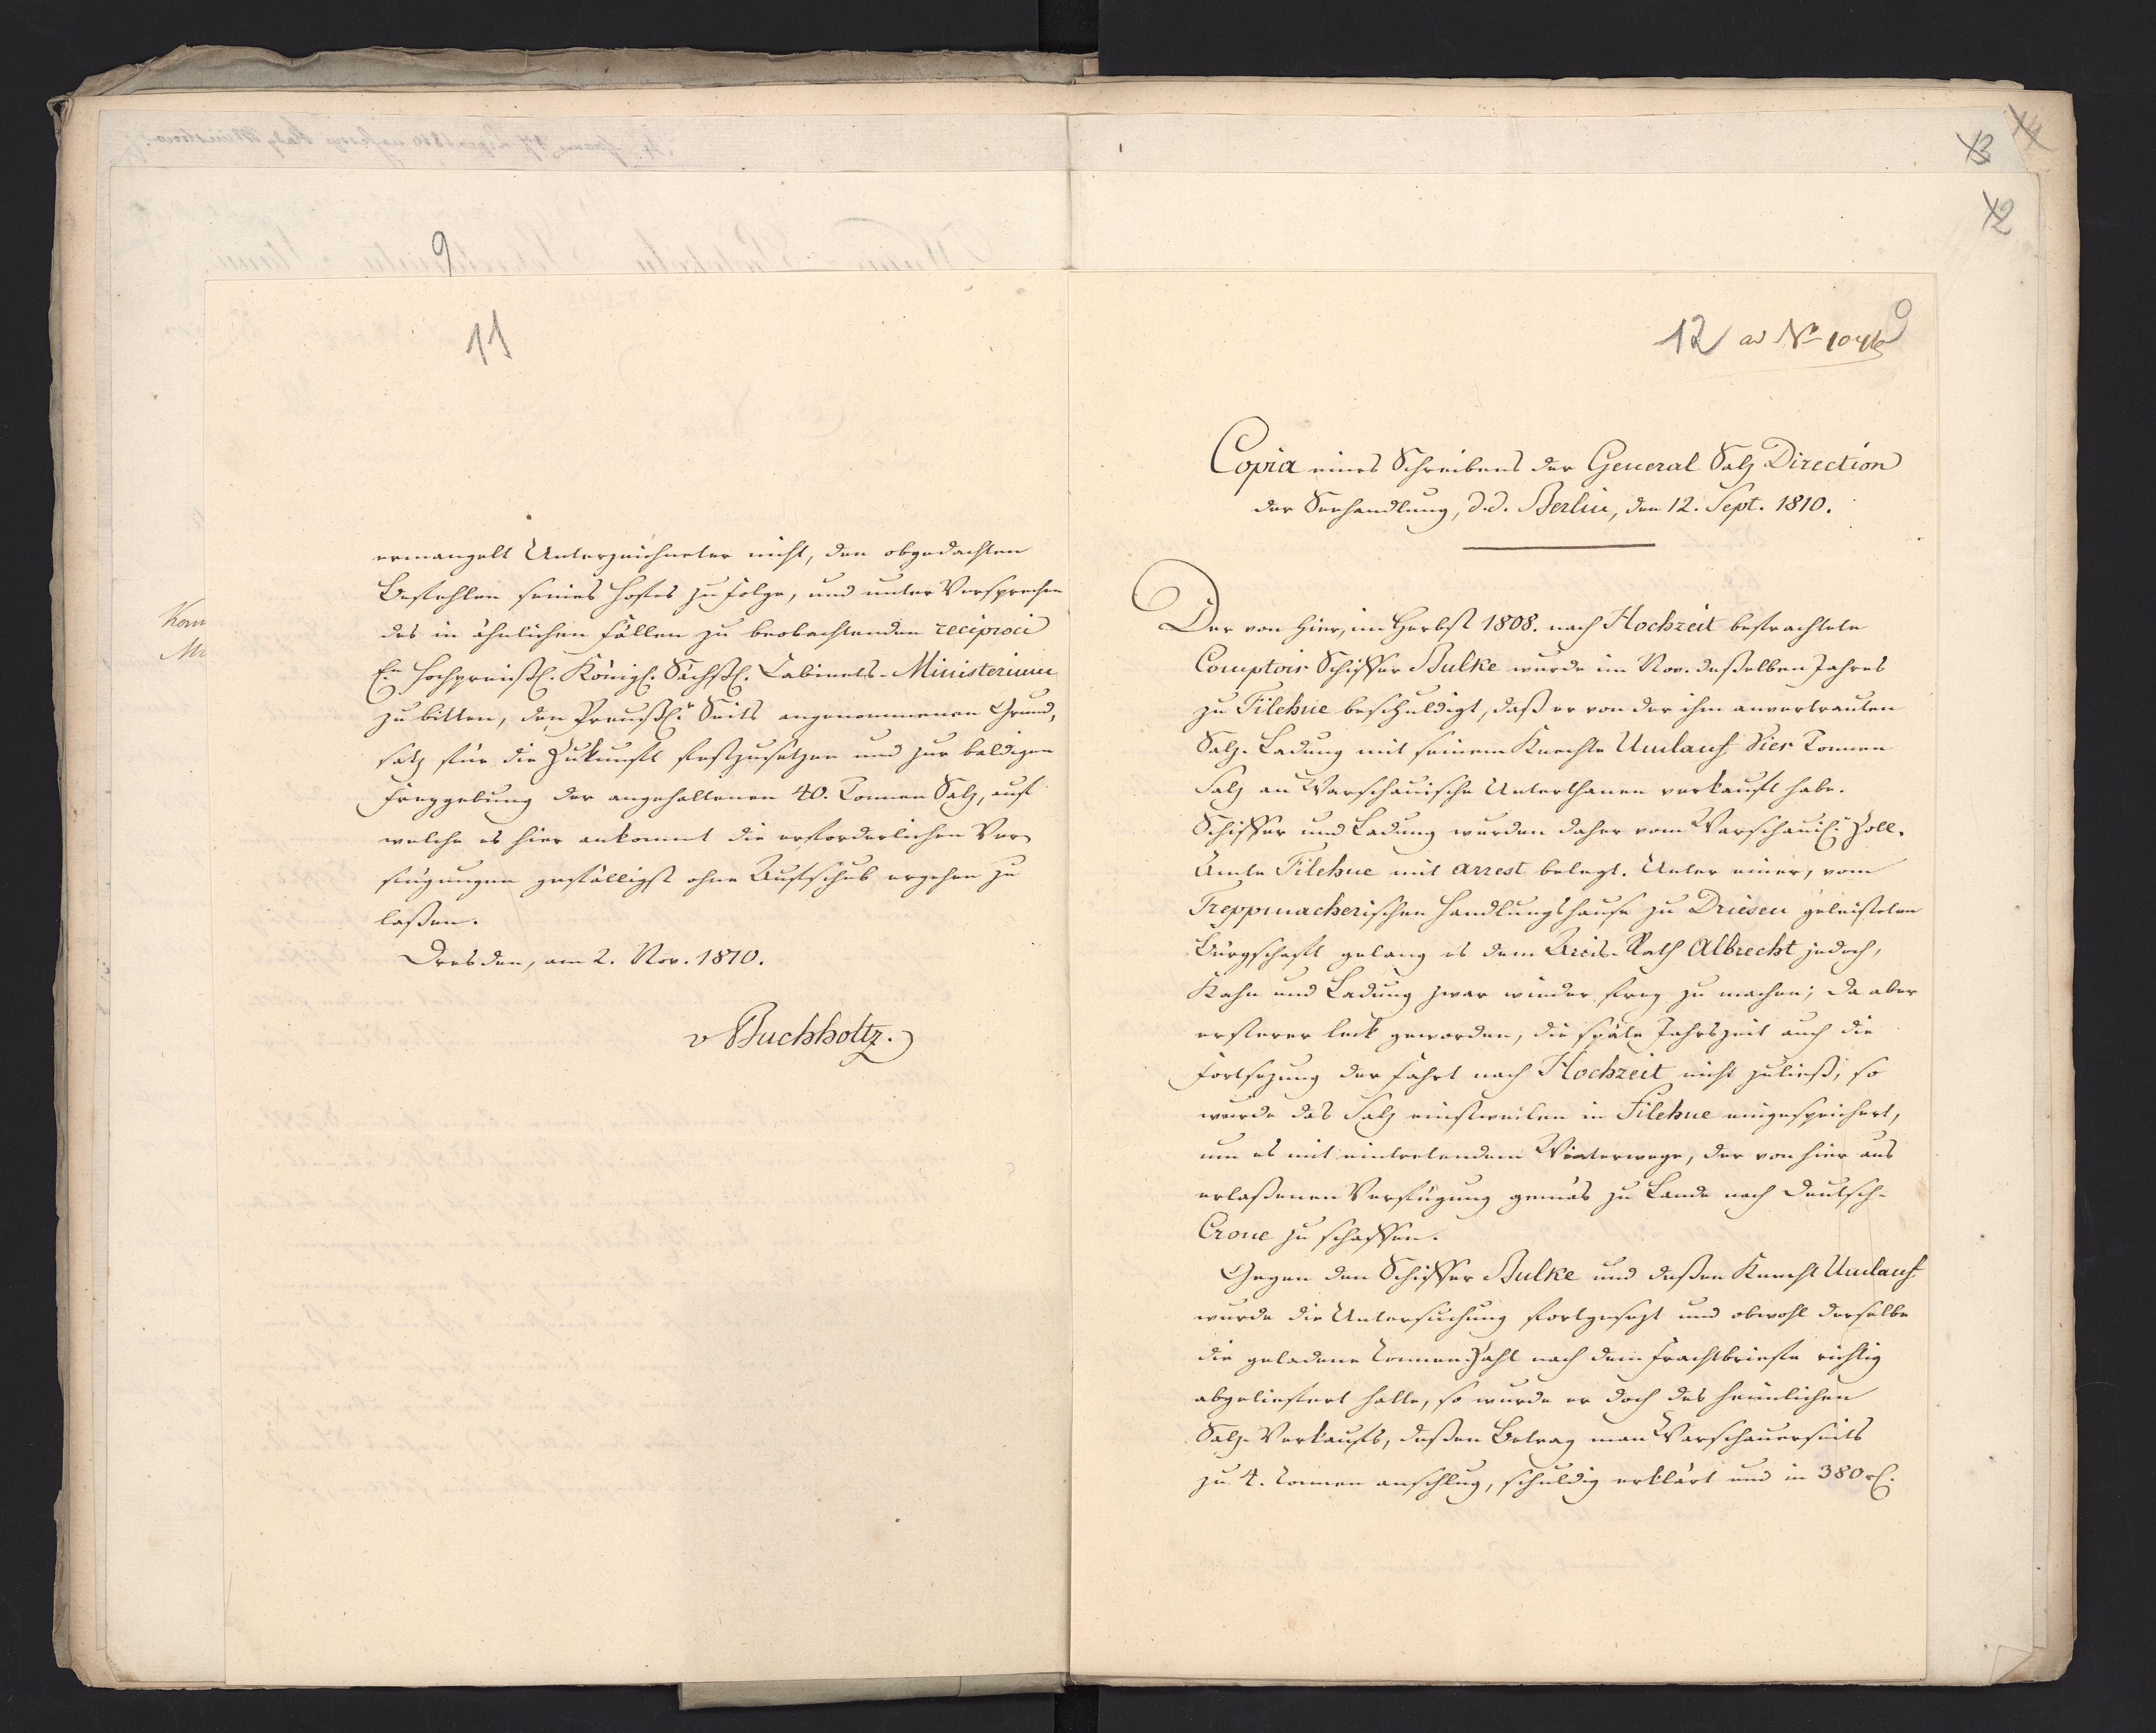 9
11
ermangelt Unterzeichneter nicht, den obgedachten
Befehlen seines Hofes zu folge, und unter Versprechen
des in ähnlichen Fällen zu beobachtenden reciproci
Hochpreißl. Königl. Sächßl. Cabinets-Ministerium
zu bitten, den Preußl. Seits angenommenen Grund,
satz für die Zukunft festzusetzen und zur baldigen
Freygebung der angehaltenen 40. Tonnen Salz, auf
welche es hier ankommt die erforderlichen Ver-
fügungen gefälligst ohne Aufschub ergehen zu
laßen.
Dresden, am 2. Nov. 1810.
v Buchholtz.
Kom
13
12
12 ad No
9
Copia eines Schreibens der General Salz Direction
der Seehandlung, d.d. Berlin, den 12. Sept. 1810.
Der von hier, im Herbst 1808. nach Hochzeit befrachtete
Comptoir Schiffer Bulke wurde im Nov. deßelben Jahres
zu Filehne beschuldigt, daß er von der ihm anvertrauten
Salz-Ladung mit seinem Knechte Umlauf Vier Tonnen
Salz an Warschauische Unterthanen verkauft habe.
Schiffer und Ladung wurden daher vom Warschauil. Zoll-
Amte Filehne mit arrest belegt. Unter einer, vom
Treppmacherischen Handlungshause zu Driesen geleisteten
Bürgschaft gelang es dem Kreis-Rath Albrecht jedoch,
Kahn und Ladung zwar wieder frey zu machen; da aber
ersterer leck geworden, die späte Jahrszeit auch die
Fortsezung der Fahrt nach Hochzeit nicht zuließ, so
wurde das Salz einstweilen in Filehne eingespeichert,
um es mit eintretendem Winterwege, der von hier aus
erlaßenen Verfügung gemäs zu Lande nach Deutsch-
Crone zu schaffen.
Gegen den Schiffer Bulke und deßen Knecht Umlauf
wurde die Untersuchung fortgesezt und obwohl derselbe
die geladene Tonnenzahl nach dem Frachtbriefe richtig
abgeliefert hatte, so wurde er doch des heimlichen
Salz-Verkaufs, deßen Betrag man Warschauerseits
zu 4. Tonnen anschlug, schuldig erklärt und in 380 rl.